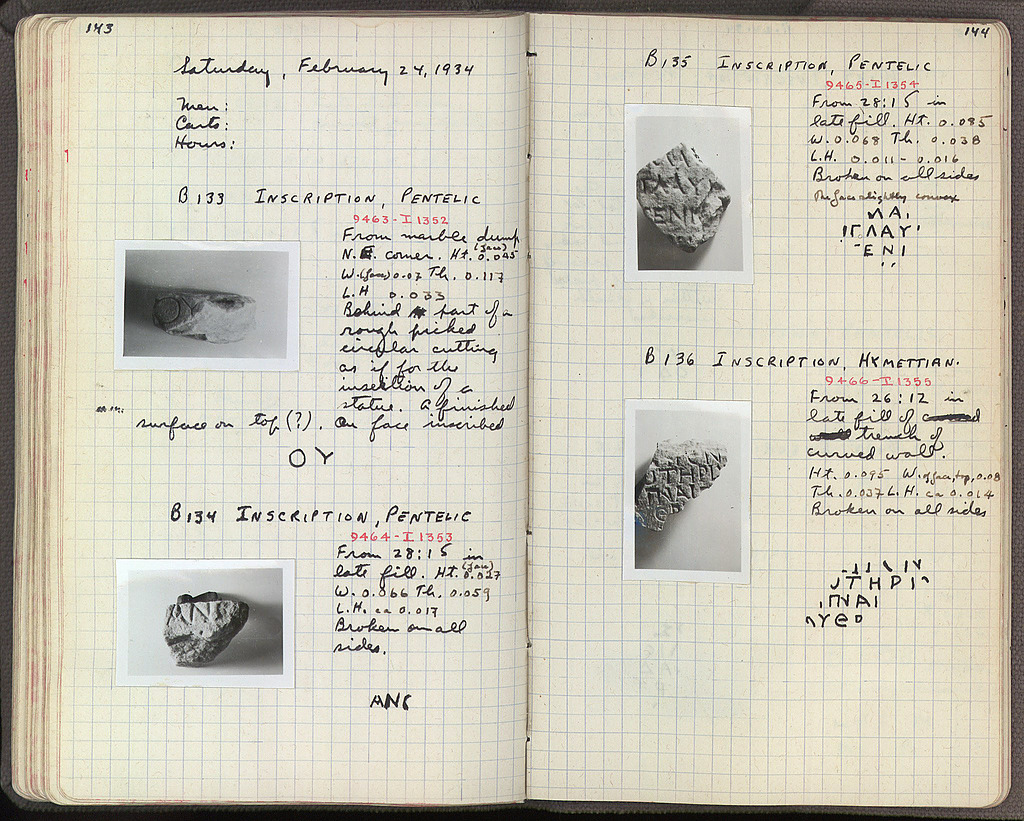 143
Saturday, February 24, 1934
Men:
Carts:
Hours:
B 133 INSCRIPTION, PENTELIC
9463-I 1352
From marble dump
N.E. corner. Ht. (face) 0.045
W. (face) 0.07 Th. 0.117
L.H. 0.033
Behind part of a
rough picked
circular cutting
as if for the
insertion of a
statue. A finished
surface on top (?). On face inscribed
ΟΥ
B 134 INSCRIPTION, PENTELIC
9464-I 1353
From 28:15 in
late fill. Ht. (face) 0.027
W. 0.066 Th. 0.059
L.H. ca 0.017
Broken on all
sides.
ΑΝ
144
B 135 INSCRIPTION, PENTELIC
9465-I 1354
From 28:15 in
late fill. Ht. 0.085
W. 0.068 Th. 0.038
L.H. 0.011-0.016
Broken on all sides
The face slightly convex
ΛΑΥ
ΕΝΙ
B 136 INSCRIPTION, HYMETTIAN.
9466-I 1355
From 26:12 in
late fill of
trench of
curved wall.
Ht. 0.095 W. of face, top, 0.08
Th. 0.037 L.H. ca 0.014
Broken on all sides
ΤΗΡΙ
ΝΑΙ